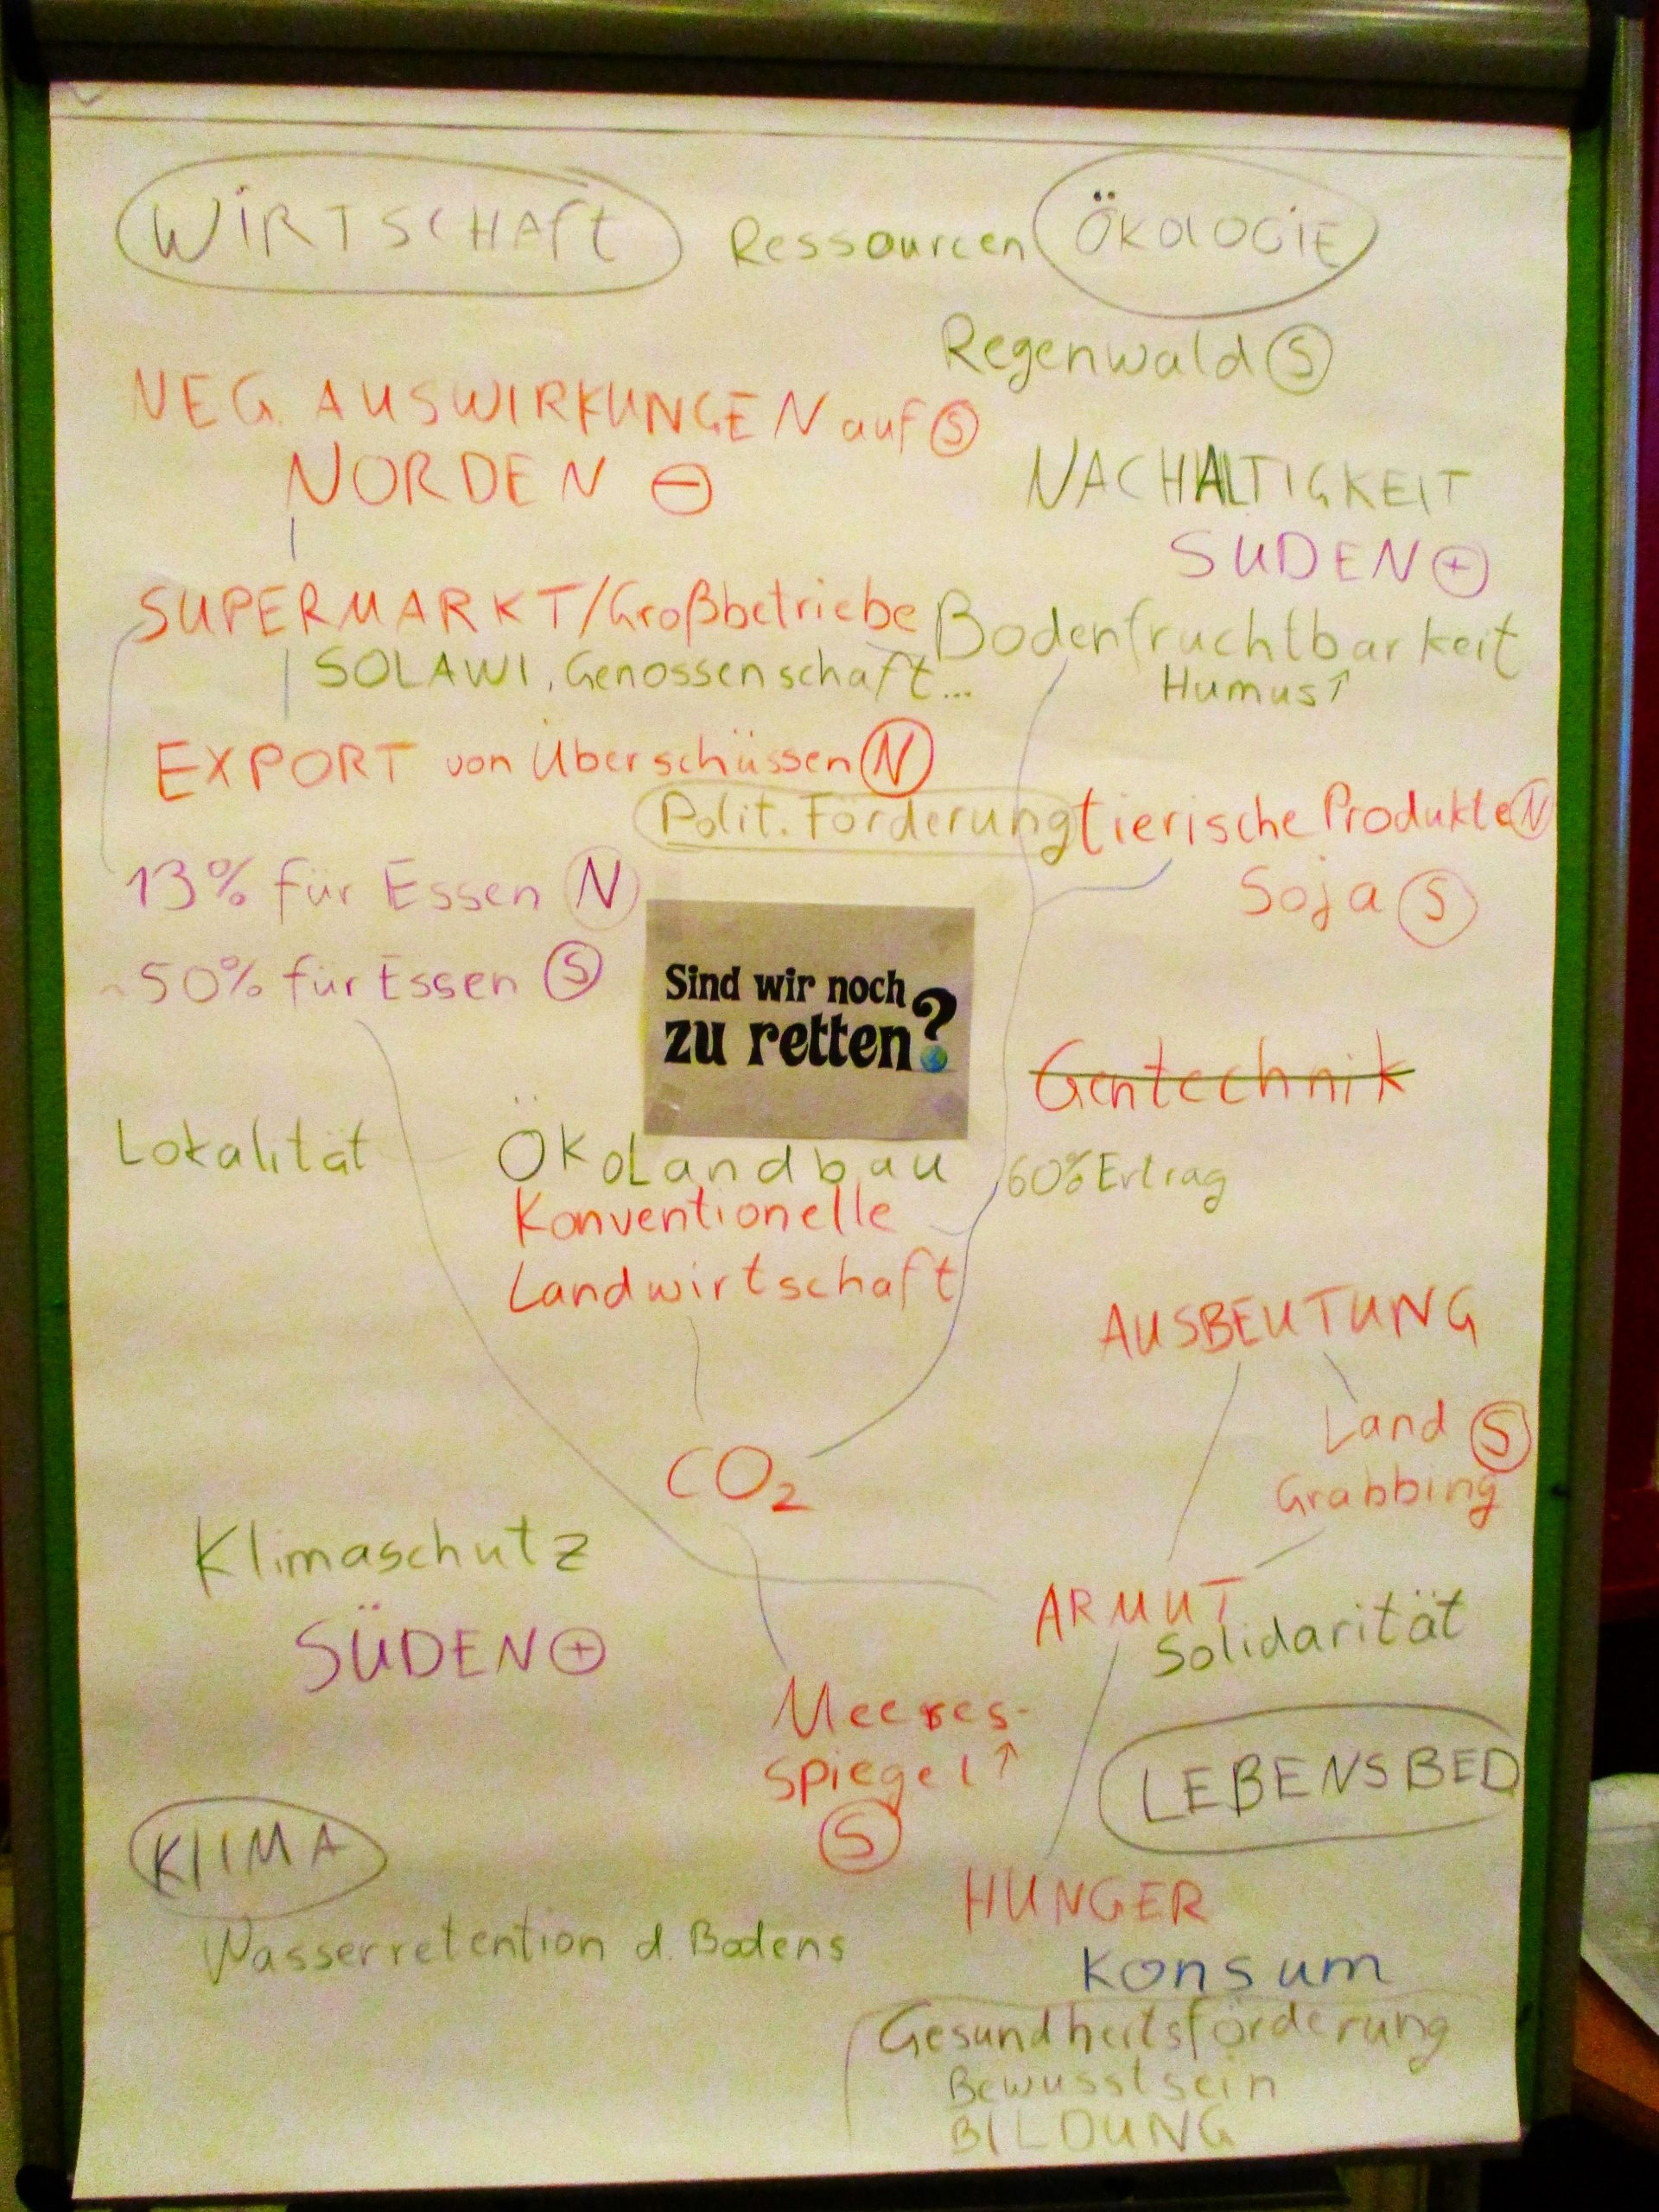 WIRTSCHAFT Ressourcen ÖKOLOGIE
Regenwald S
NEG. AUSWIRKUNGEN auf S
NORDEN -
NACHHALTIGKEIT
SÜDEN +
SUPERMARKT/Großbetriebe
SOLAWI, Genossenschaft...
Bodenfruchtbarkeit
Humus↑
EXPORT von Überschüssen N
Polit. Förderung
tierische Produkte N
Soja S
13% für Essen N
~50% für Essen S
Sind wir noch
zu retten?
Gentechnik
Lokalität
ÖKOLandbau
60% Ertrag
Konventionelle
Landwirtschaft
AUSBEUTUNG
Land S
Grabbing
CO2
Klimaschutz
SÜDEN +
ARMUT
Solidarität
Meeres-
spiegel↑
S
LEBENSBED
KLIMA
HUNGER
Wasserretention d. Bodens
Konsum
Gesundheitsförderung
Bewusstsein
BILDUNG